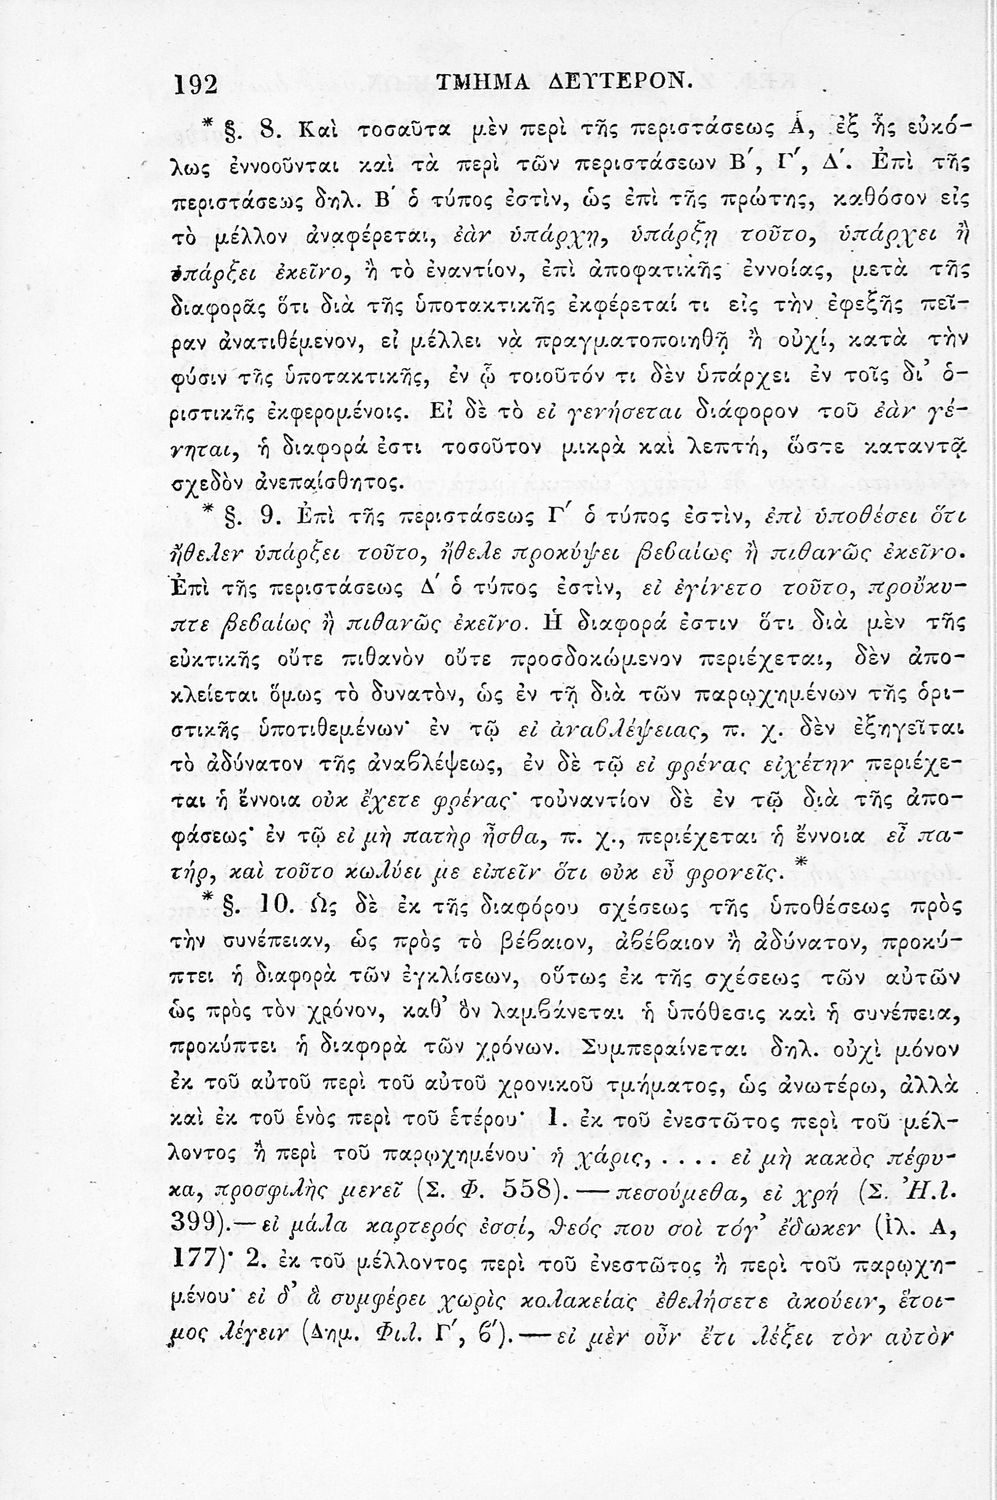 192 ΤΜΗΜΑ ΔΕΥΤΕΡΟΝ.
* §. 8. Καὶ τοσαῦτα μὲν περὶ τῆς περιστάσεως Α΄, ἐξ ἧς εὐκό-
λως ἐννοοῦνται καὶ τὰ περὶ τῶν περιστάσεων Β΄, Γ΄, Δ΄. Ἐπὶ τῆς
περιστάσεως δηλ. Β΄ ὁ τύπος ἐστὶν, ὡς ἐπὶ τῆς πρώτης, καθόσον εἰς
τὸ μέλλον ἀναφέρεται, ἐὰν ὑπάρχῃ, ὑπάρξῃ τοῦτο, ὑπάρχει ἢ
ὑπάρξει ἐκεῖνο, ἢ τὸ ἐναντίον, ἐπὶ ἀποφατικῆς ἐννοίας, μετὰ τῆς
διαφορᾶς ὅτι διὰ τῆς ὑποτακτικῆς ἐκφέρεταί τι εἰς τὴν ἐφεξῆς πεῖ-
ραν ἀνατιθέμενον, εἰ μέλλει νὰ πραγματοποιηθῇ ἢ οὐχί, κατὰ τὴν
φύσιν τῆς ὑποτακτικῆς, ἐν ᾧ τοιοῦτόν τι δὲν ὑπάρχει ἐν τοῖς δι’ ὁ-
ριστικῆς ἐκφερομένοις. Εἰ δὲ τὸ εἰ γενήσεται διάφορον τοῦ ἐὰν γέ-
νηται, ἡ διαφορά ἐστι τοσοῦτον μικρὰ καὶ λεπτή, ὥστε καταντᾷ
σχεδὸν ἀνεπαίσθητος.
* §. 9. Ἐπὶ τῆς περιστάσεως Γ΄ ὁ τύπος ἐστὶν, ἐπὶ ὑποθέσει ὅτι
ἤθελεν ὑπάρξει τοῦτο, ἤθελε προκύψει βεβαίως ἢ πιθανῶς ἐκεῖνο.
Ἐπὶ τῆς περιστάσεως Δ΄ ὁ τύπος ἐστὶν, εἰ ἐγίνετο τοῦτο, προὔκυ-
πτε βεβαίως ἢ πιθανῶς ἐκεῖνο. Ἡ διαφορά ἐστιν ὅτι διὰ μὲν τῆς
εὐκτικῆς οὔτε πιθανὸν οὔτε προσδοκώμενον περιέχεται, δὲν ἀπο-
κλείεται ὅμως τὸ δυνατὸν, ὡς ἐν τῇ διὰ τῶν παρῳχημένων τῆς ὁρι-
στικῆς ὑποτιθεμένων· ἐν τῷ εἰ ἀναβλέψειας, π. χ. δὲν ἐξηγεῖται
τὸ ἀδύνατον τῆς ἀναβλέψεως, ἐν δὲ τῷ εἰ φρένας εἰχέτην περιέχε-
ται ἡ ἔννοια οὐκ ἔχετε φρένας· τοὐναντίον δὲ ἐν τῷ διὰ τῆς ἀπο-
φάσεως· ἐν τῷ εἰ μὴ πατὴρ ἦσθα, π. χ., περιέχεται ἡ ἔννοια εἶ πα-
τήρ, καὶ τοῦτο κωλύει με εἰπεῖν ὅτι οὐκ εὖ φρονεῖς. *
* §. 10. Ὡς δὲ ἐκ τῆς διαφόρου σχέσεως τῆς ὑποθέσεως πρὸς
τὴν συνέπειαν, ὡς πρὸς τὸ βέβαιον, ἀβέβαιον ἢ ἀδύνατον, προκύ-
πτει ἡ διαφορὰ τῶν ἐγκλίσεων, οὕτως ἐκ τῆς σχέσεως τῶν αὐτῶν
ὡς πρὸς τὸν χρόνον, καθ’ ὃν λαμβάνεται ἡ ὑπόθεσις καὶ ἡ συνέπεια,
προκύπτει ἡ διαφορὰ τῶν χρόνων. Συμπεραίνεται δηλ. οὐχὶ μόνον
ἐκ τοῦ αὐτοῦ περὶ τοῦ αὐτοῦ χρονικοῦ τμήματος, ὡς ἀνωτέρω, ἀλλὰ
καὶ ἐκ τοῦ ἑνὸς περὶ τοῦ ἑτέρου· 1. ἐκ τοῦ ἐνεστῶτος περὶ τοῦ μέλ-
λοντος ἢ περὶ τοῦ παρῳχημένου· ἡ χάρις, . . . . εἰ μὴ κακὸς πέφυ-
κα, προσφιλὴς μενεῖ (Σ. Φ. 558).— πεσούμεθα, εἰ χρή (Σ. Ἠλ.
399).— εἰ μάλα καρτερός ἐσσί, θεός που σοὶ τόγ’ ἔδωκεν (Ἰλ. Α,
177)· 2. ἐκ τοῦ μέλλοντος περὶ τοῦ ἐνεστῶτος ἢ περὶ τοῦ παρῳχη-
μένου· εἰ δ’ ἃ συμφέρει χωρὶς κολακείας ἐθελήσετε ἀκούειν, ἕτοι-
μος λέγειν (Δημ. Φιλ. Γ΄, β΄).— εἰ μὲν οὖν ἔτι λέξει τὸν αὐτὸν